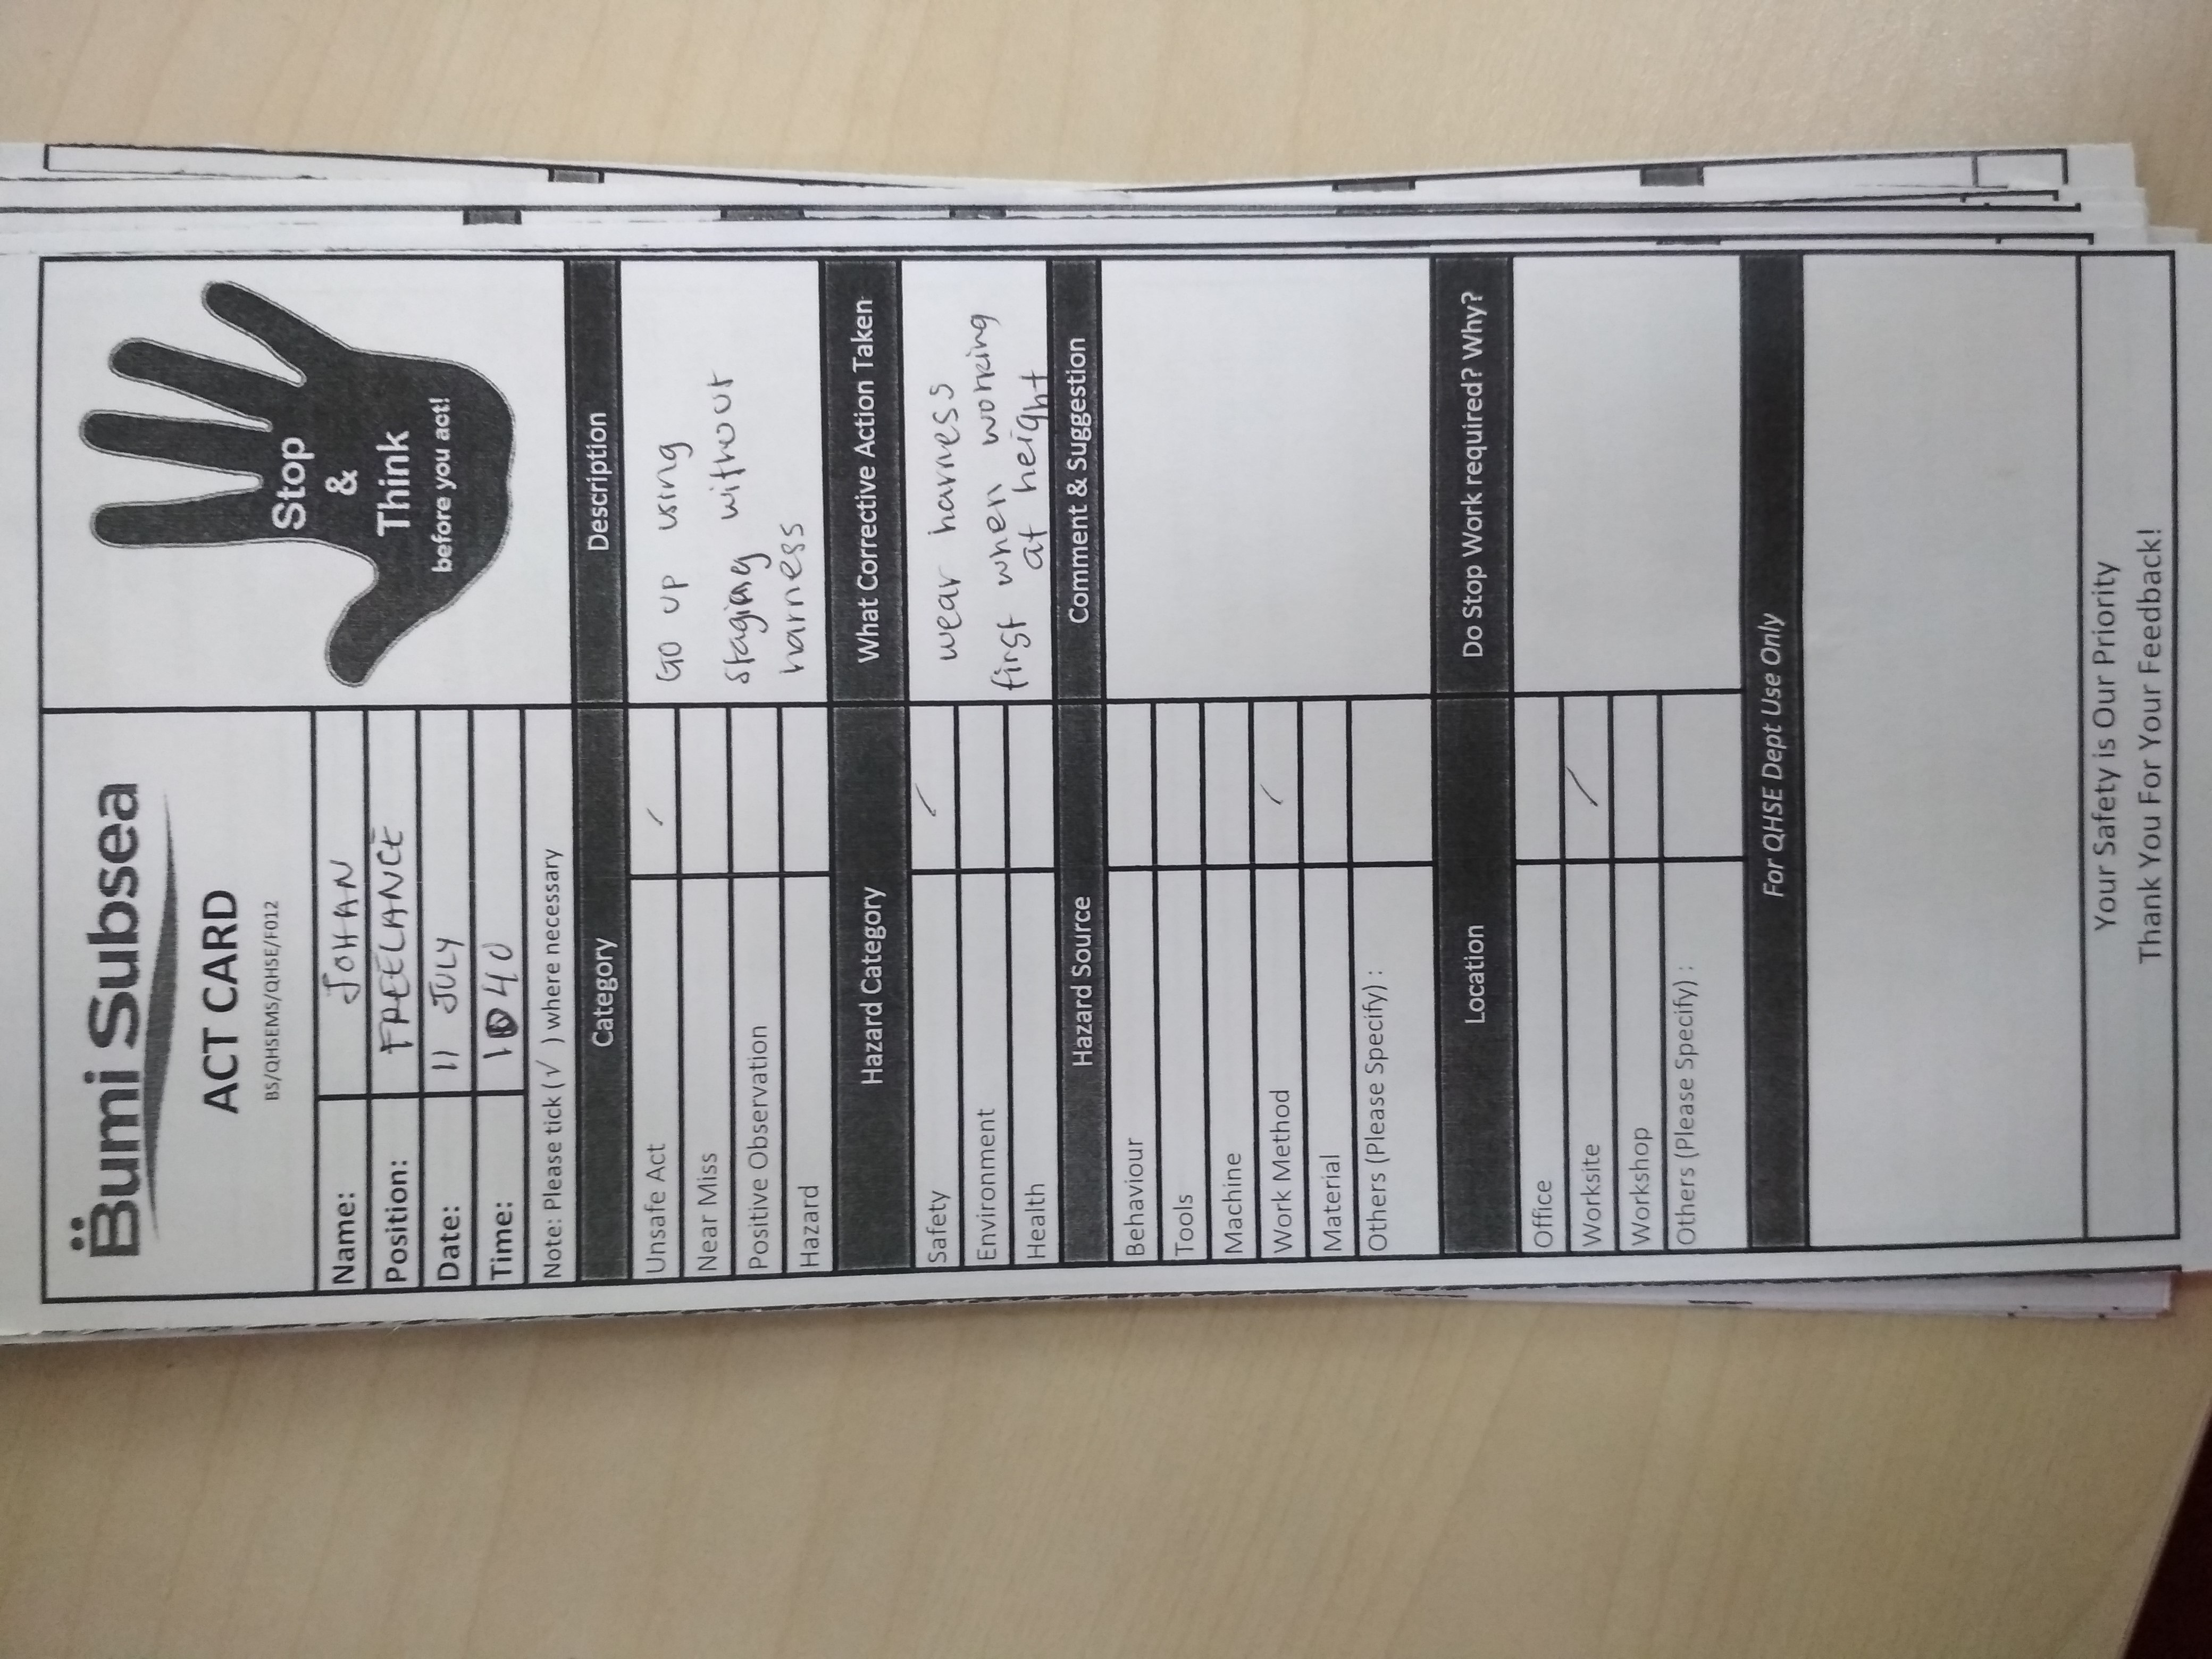 Bumi Subsea
ACT CARD
BS/QHSEMS/QHSE/F012
Stop
&
Think
before you act!
Name: JOHAN
Position: FREELANCE
Date: 11 JULY
Time: 1040
Note: Please tick (√ ) where necessary
Category
Description
Unsafe Act /
Near Miss
Positive Observation
Hazard
Go up using
staging without
harness
Hazard Category
What Corrective Action Taken
Safety /
Environment
Health
wear harness
first when working
at height
Hazard Source
Comment & Suggestion
Behaviour
Tools
Machine
Work Method /
Material
Others (Please Specify) :
Location
Do Stop Work required? Why?
Office
Worksite /
Workshop
Others (Please Specify) :
For QHSE Dept Use Only
Your Safety is Our Priority
Thank You For Your Feedback!